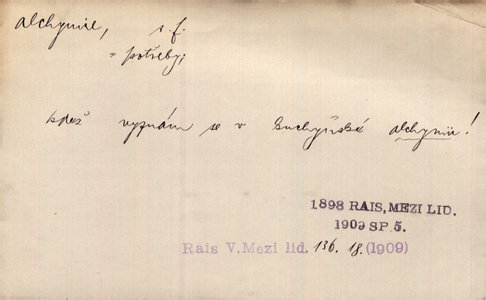 alchymie, s. f.
= potřeby;
kdež vyznám se v kuchyňské alchymii!
1898 RAIS, MEZI LID.
1909 SP. 5.
Rais V. Mezi lid. 136. 18. (1909)